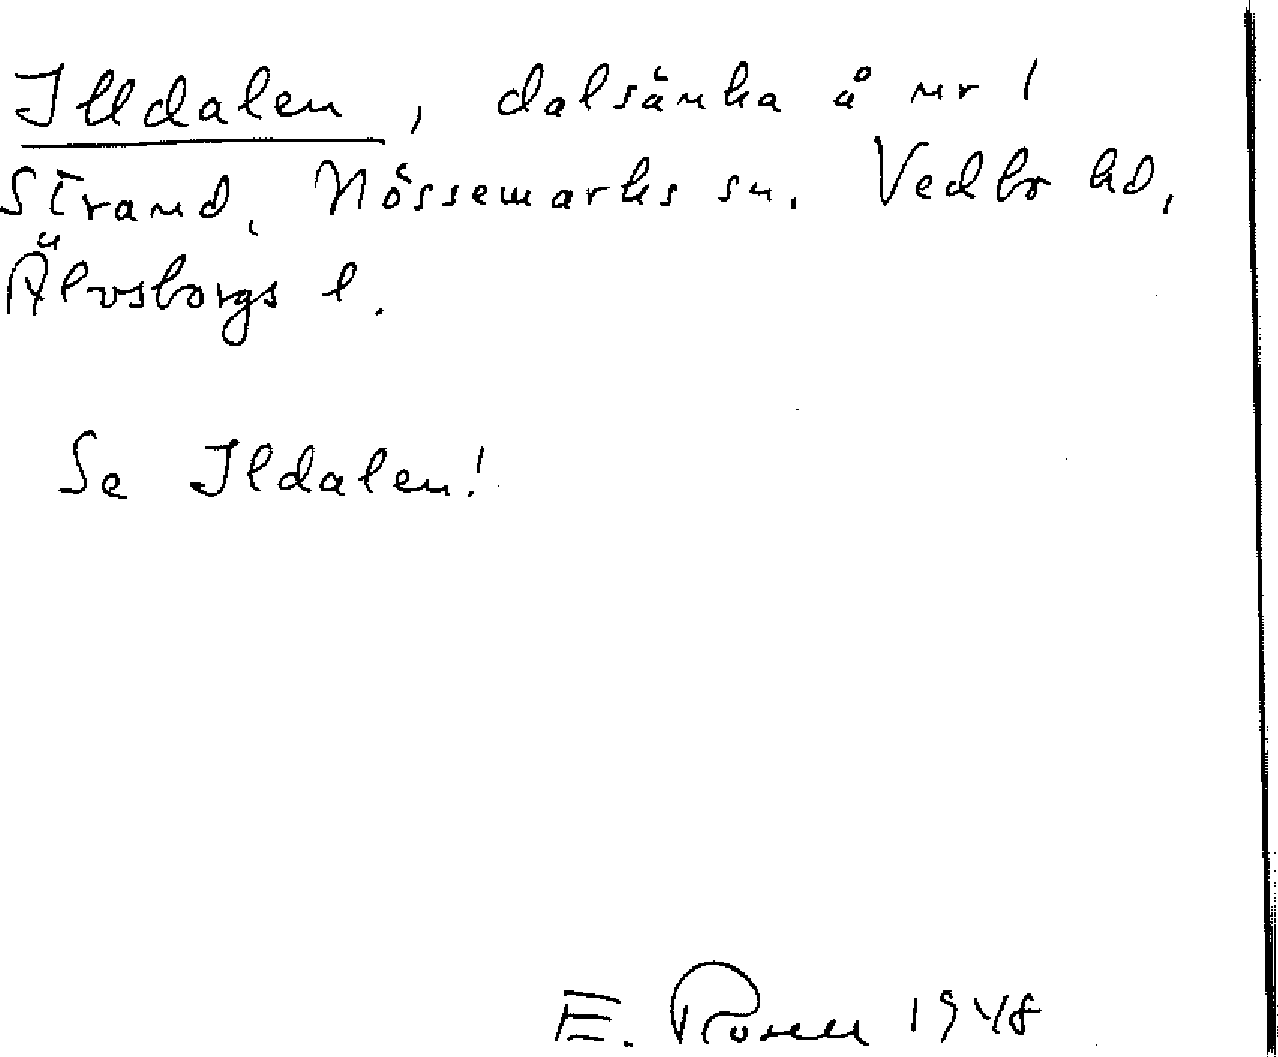 Illdalen, dalsänka å nr 1
Strand, Nössemarks sn. Vedbo hd,
Älvsborgs l.
Se Ildalen!
E. Rosell 1948